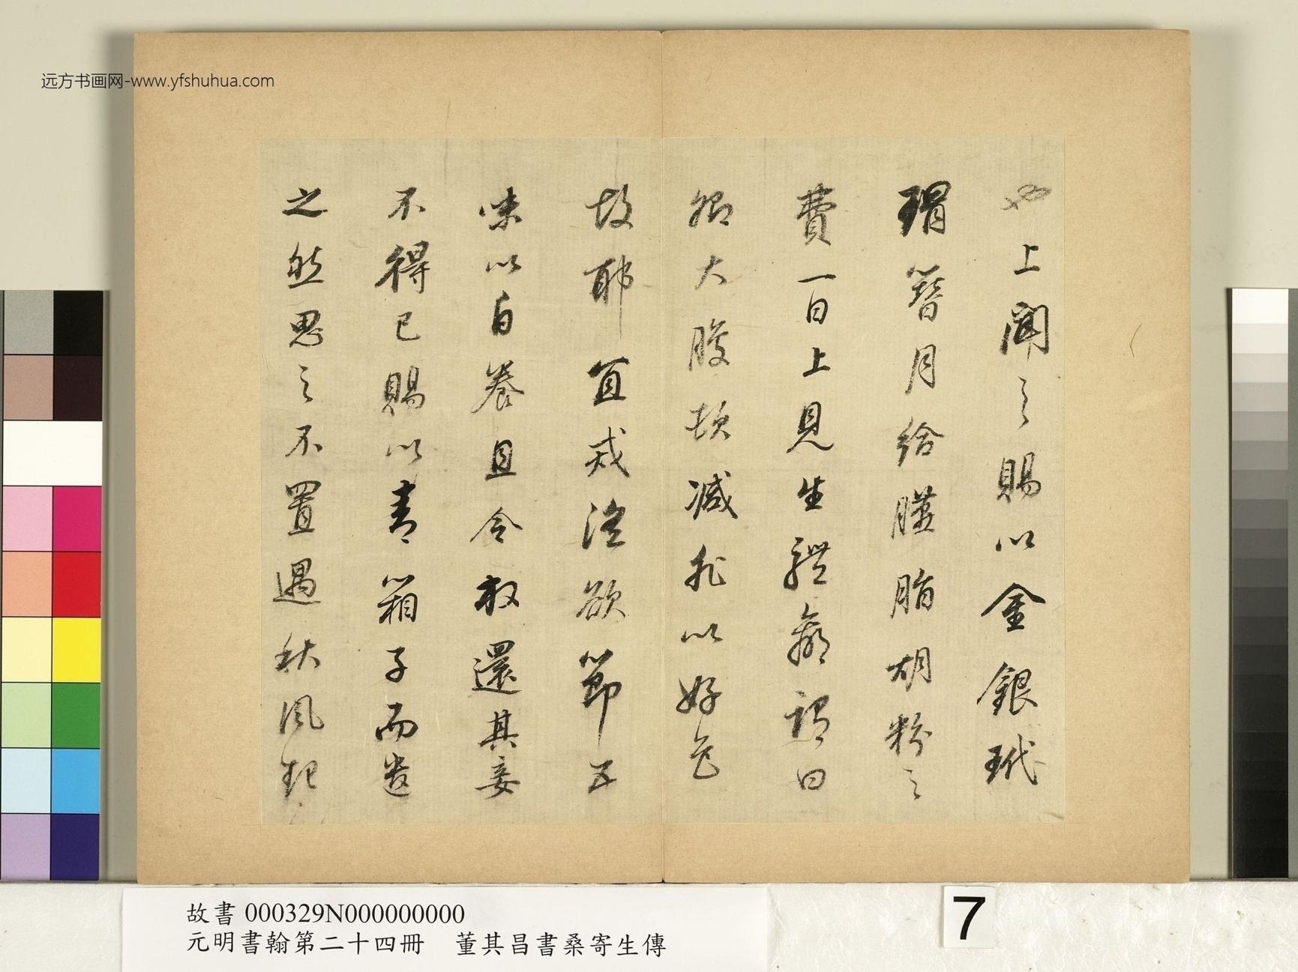 远方书画网-www.yfshuhua.com
也上聞之賜以金銀玳
瑁簪月給臙脂胡粉之
費一日上見生體羸謂曰
卿大腹頓減非以好色
故耶宜戒淫欲節五
味以自養且令放還其妾
不得已賜以青箱子而遣
之然思之不置遇秋風起
故書 000329N000000000
元明書翰第二十四冊　董其昌書桑寄生傳
7